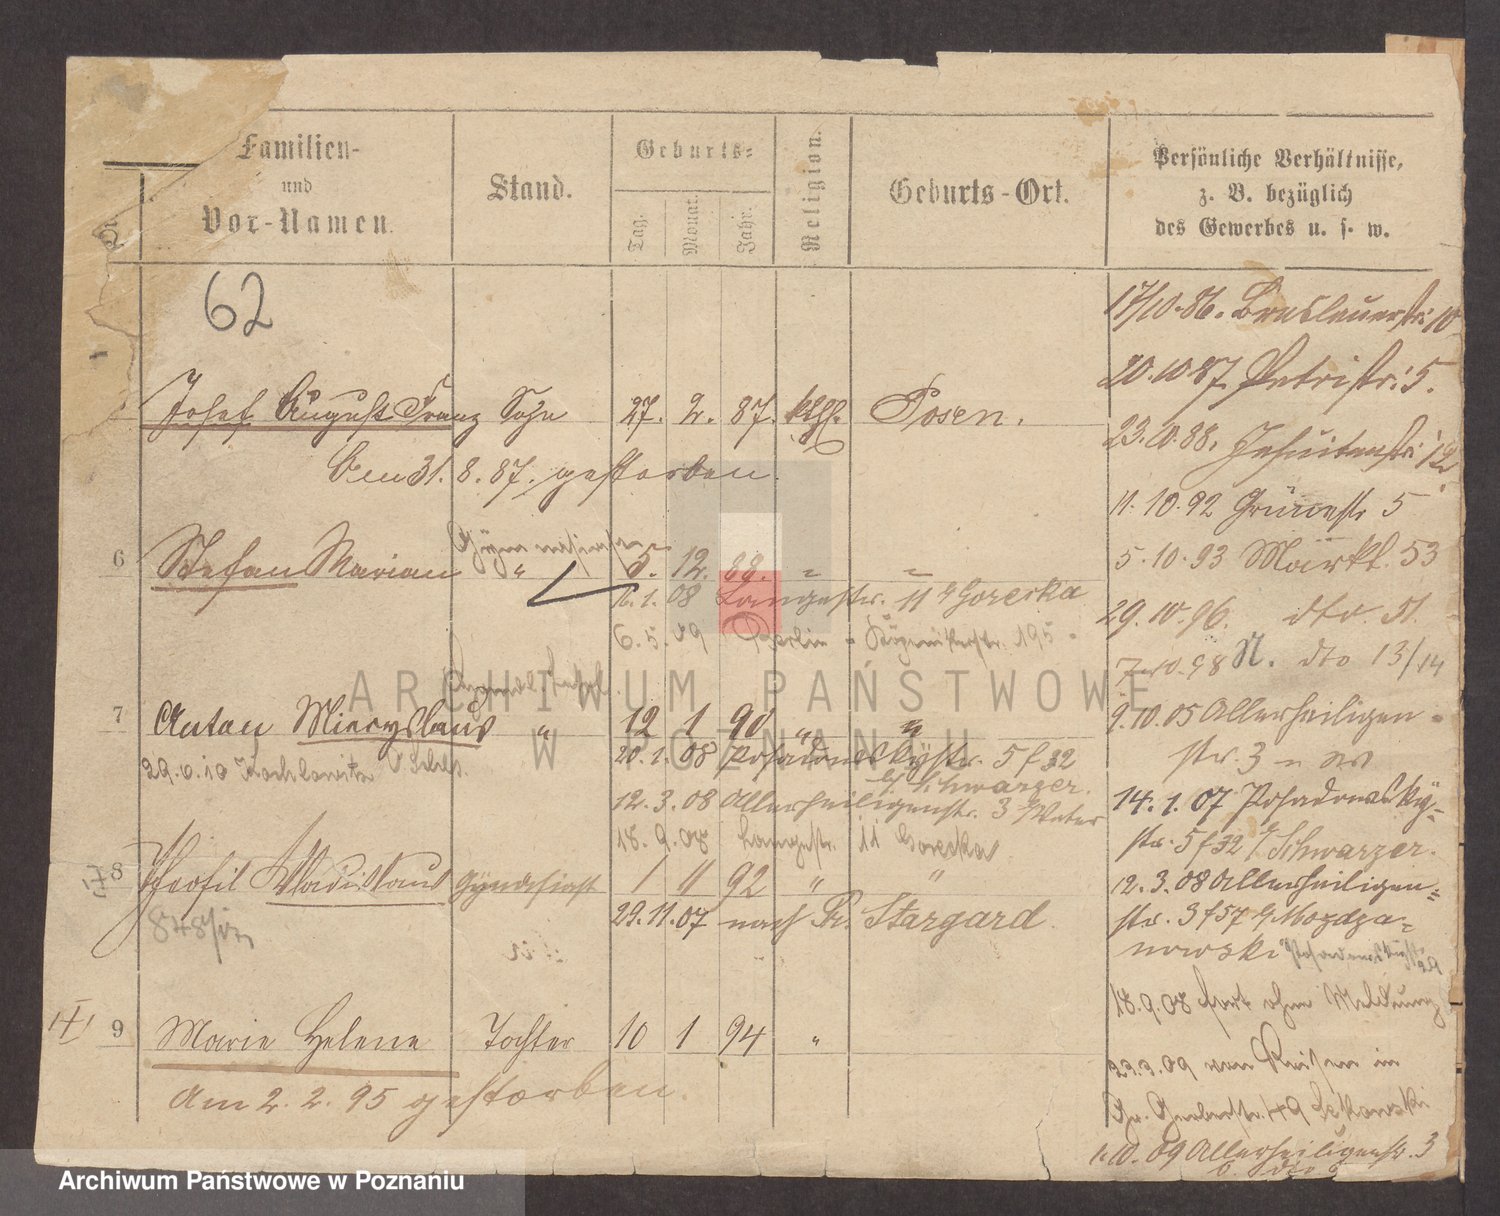 Familien-
und
Vor-Namen.
Stand.
Geburts-
Tag.
Monat.
Jahr.
Religion.
Geburts-Ort.
Persönliche Verhältnisse,
z. B. bezüglich
des Gewerbes u. s. w.
62
17/10.86. Breslauerstr. 10
20.10.87 Petristr. 5.
Josef August Franz Sohn 27. 2. 87. kth. Posen.
23.10.88. Jesuitenstr. 12
Am 31. 8. 87. gestorben.
11. 10. 92 Grünestr 5
6 Stefan Marian " 5. 12. 88. " "
5. 10. 93 Markt. 53
11. 1. 08 Langestr. 11 b/ Goreska
29. 10. 96. dto. 51.
6. 5. 09 Berlin - 195
7. 10. 98 N. dto 13/14
7 Anton Miecyslaus " 12 1 90 " "
9. 10. 05 Allerheiligen-
str. 3
29.6.10
20. 1. 08 Posadowskystr. 5 f 32
b/ Schwarzer.
14. 1. 07 Posadowsky-
12. 3. 08 Allerheiligenstr. 3 b/ Vater
str. 5 f 32 b/ Schwarzer.
18. 9. 08 Langestr. 11 Goreska
8 Teofil Wladislaus Gymnasiast 1 11 92 " "
12. 3. 08 Allerheiligen-
str. 3 f 57 b/ Mozdza-
29. 11. 07 nach Pr. Stargard.
nowski
18. 9. 08 fort ohne Meldung
9 Marie Helene Tochter 10 1 94 "
am 2. 2. 95 gestorben.
1.10. 09 Allerheiligenstr. 3
ARCHIWUM PAŃSTWOWE
W POZNANIU
Archiwum Państwowe w Poznaniu